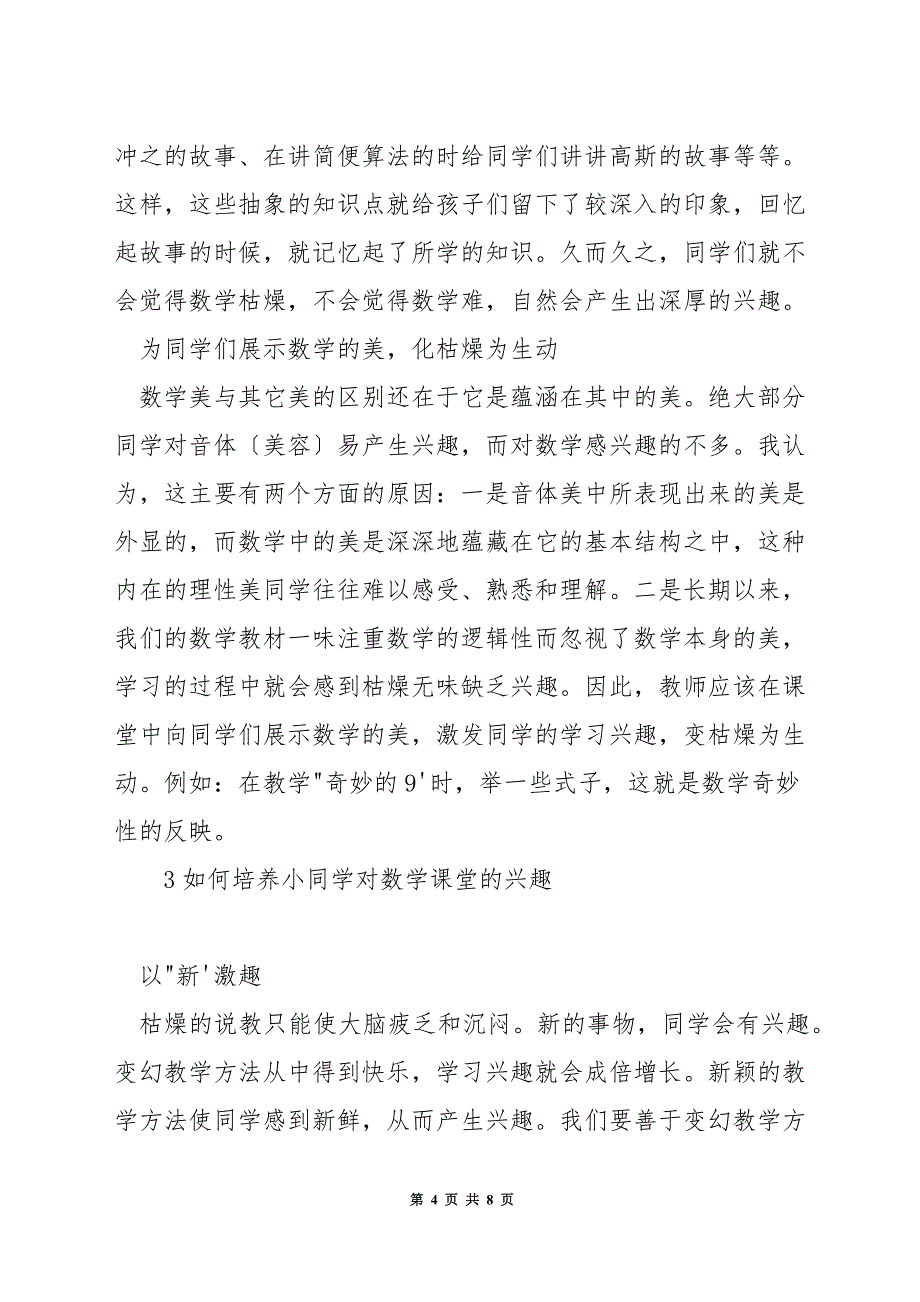 冲之的故事、在讲简便算法的时给同学们讲讲高斯的故事等等。
这样，这些抽象的知识点就给孩子们留下了较深入的印象，回忆
起故事的时候，就记忆起了所学的知识。久而久之，同学们就不
会觉得数学枯燥，不会觉得数学难，自然会产生出深厚的兴趣。
为同学们展示数学的美，化枯燥为生动
数学美与其它美的区别还在于它是蕴涵在其中的美。绝大部分
同学对音体〔美容〕易产生兴趣，而对数学感兴趣的不多。我认
为，这主要有两个方面的原因：一是音体美中所表现出来的美是
外显的，而数学中的美是深深地蕴藏在它的基本结构之中，这种
内在的理性美同学往往难以感受、熟悉和理解。二是长期以来，
我们的数学教材一味注重数学的逻辑性而忽视了数学本身的美，
学习的过程中就会感到枯燥无味缺乏兴趣。因此，教师应该在课
堂中向同学们展示数学的美，激发同学的学习兴趣，变枯燥为生
动。例如：在教学"奇妙的 9'时，举一些式子，这就是数学奇妙
性的反映。
3 如何培养小同学对数学课堂的兴趣
以"新'激趣
枯燥的说教只能使大脑疲乏和沉闷。新的事物，同学会有兴趣。
变幻教学方法从中得到快乐，学习兴趣就会成倍增长。新颖的教
学方法使同学感到新鲜，从而产生兴趣。我们要善于变幻教学方
第 4 页 共 8 页